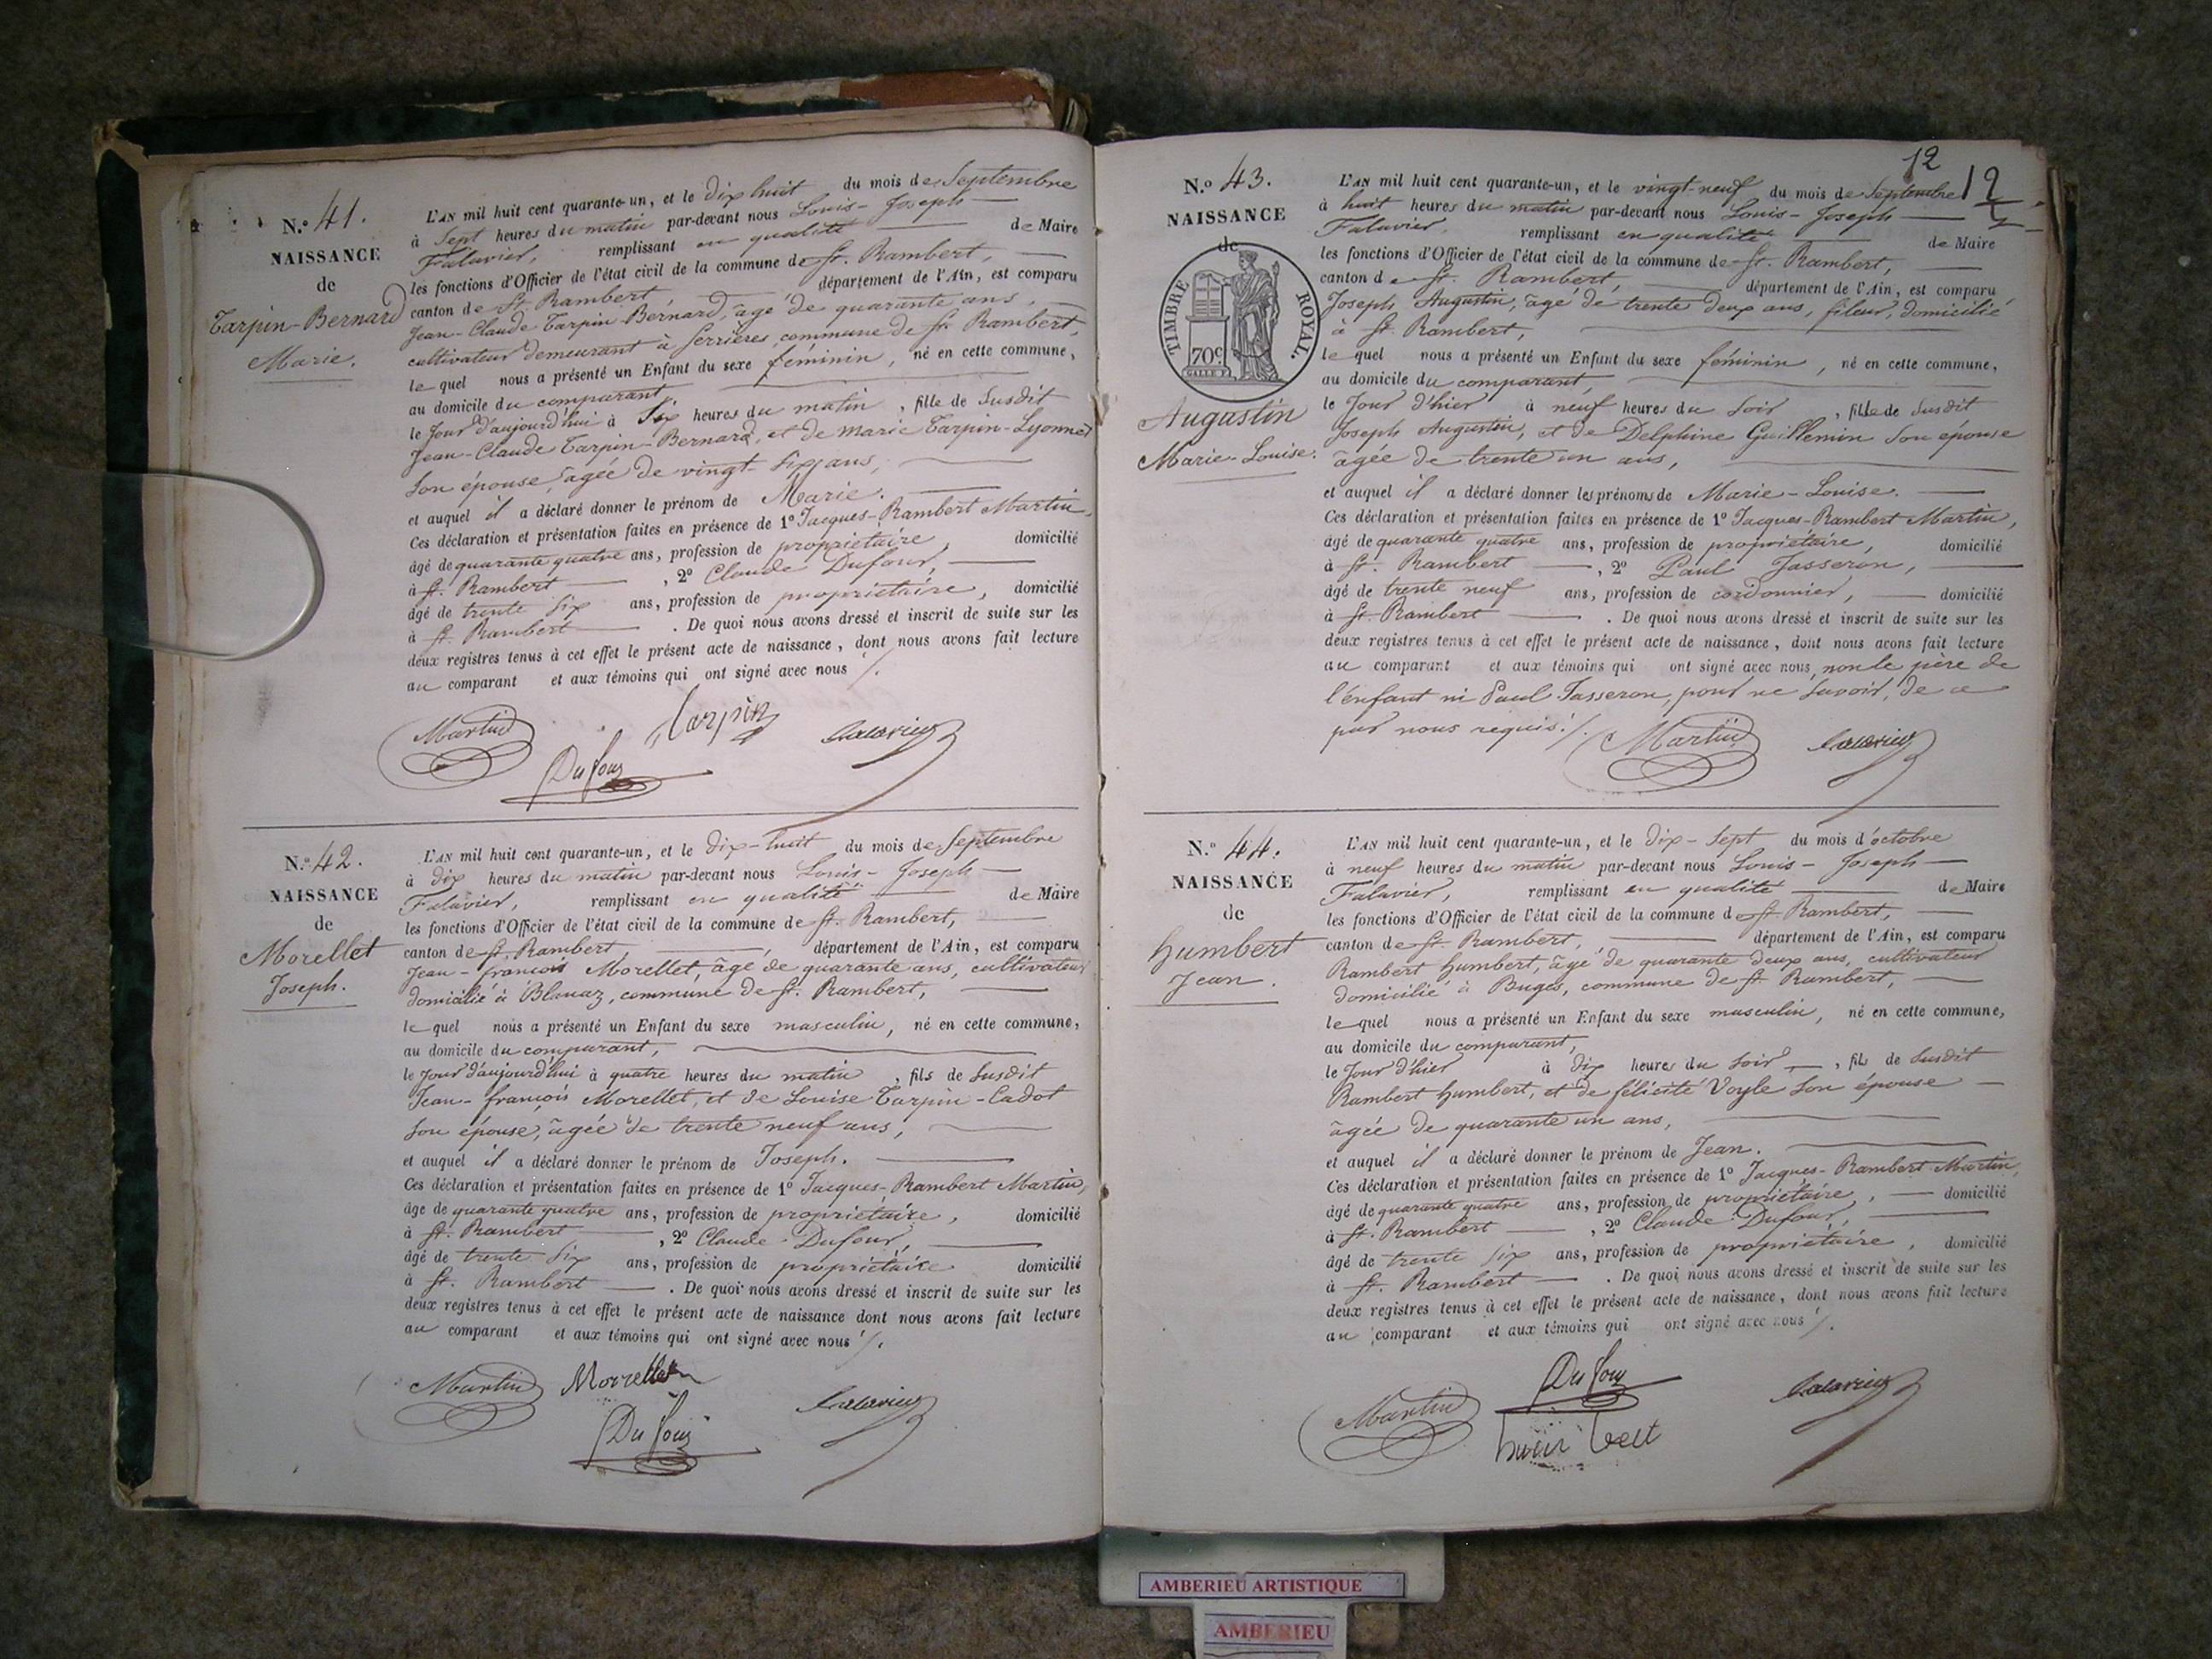 N.o 41.
NAISSANCE
de
Tarpin-Bernard
Marie.
L'AN mil huit cent quarante-un, et le dix huit du mois de Septembre
à Sept heures du matin par-devant nous Louis-Joseph
Falavier, remplissant en qualité de Maire
les fonctions d'Officier de l'état civil de la commune de St. Rambert,
canton de St. Rambert, département de l'Ain, est comparu
Jean-Claude Tarpin-Bernard, âgé de quarante ans,
cultivateur demeurant à Serrières, commune de St. Rambert,
lequel nous a présenté un Enfant du sexe féminin, né en cette commune,
au domicile du comparant,
le Jour d'aujourd'hui à Six heures du matin, fille de Susdit
Jean-Claude Tarpin-Bernard, et de Marie Tarpin-Lyonnet
son épouse, âgée de vingt-six ans,
et auquel il a déclaré donner le prénom de Marie.
Ces déclaration et présentation faites en présence de 1º Jacques-Rambert Martin,
âgé de quarante quatre ans, profession de propriétaire, domicilié
à St. Rambert, 2º Claude Dufour,
âgé de trente six ans, profession de propriétaire, domicilié
à St. Rambert. De quoi nous avons dressé et inscrit de suite sur les
deux registres tenus à cet effet le présent acte de naissance, dont nous avons fait lecture
au comparant et aux témoins qui ont signé avec nous ./.
Martin Tarpin Falavier
Dufour
N.o 42.
NAISSANCE
de
Morellet
Joseph.
L'AN mil huit cent quarante-un, et le dix-huit du mois de Septembre
à dix heures du matin par-devant nous Louis-Joseph
Falavier, remplissant en qualité de Maire
les fonctions d'Officier de l'état civil de la commune de St. Rambert,
canton de St. Rambert, département de l'Ain, est comparu
Jean-françois Morellet, âgé de quarante ans, cultivateur
domicilié à Blanaz, commune de St. Rambert,
lequel nous a présenté un Enfant du sexe masculin, né en cette commune,
au domicile du comparant,
le Jour d'aujourd'hui à quatre heures du matin, fils de Susdit
Jean-françois Morellet, et de Louise Tarpin-Cadot
son épouse, âgée de trente neuf ans,
et auquel il a déclaré donner le prénom de Joseph.
Ces déclaration et présentation faites en présence de 1º Jacques-Rambert Martin,
âgé de quarante quatre ans, profession de propriétaire, domicilié
à St. Rambert, 2º Claude Dufour,
âgé de trente six ans, profession de propriétaire domicilié
à St. Rambert. De quoi nous avons dressé et inscrit de suite sur les
deux registres tenus à cet effet le présent acte de naissance dont nous avons fait lecture
au comparant et aux témoins qui ont signé avec nous ./.
Martin Morrellet Falavier
Dufour
12
12
N.o 43.
NAISSANCE
de
TIMBRE ROYAL.
70c
Augustin
Marie-Louise.
L'AN mil huit cent quarante-un, et le vingt-neuf du mois de Septembre
à huit heures du matin par-devant nous Louis-Joseph
Falavier, remplissant en qualité de Maire
les fonctions d'Officier de l'état civil de la commune de St. Rambert,
canton de St. Rambert, département de l'Ain, est comparu
Joseph Augustin, âgé de trente deux ans, fileur, domicilié
à St. Rambert,
lequel nous a présenté un Enfant du sexe féminin, né en cette commune,
au domicile du comparant,
le Jour d'hier à neuf heures du Soir, fille de Susdit
Joseph Augustin, et de Delphine Guillemin son épouse
âgée de trente un ans,
et auquel il a déclaré donner les prénoms de Marie-Louise.
Ces déclaration et présentation faites en présence de 1º Jacques-Rambert Martin,
âgé de quarante quatre ans, profession de propriétaire, domicilié
à St. Rambert, 2º Paul Jasseron,
âgé de trente neuf ans, profession de cordonnier, domicilié
à St. Rambert. De quoi nous avons dressé et inscrit de suite sur les
deux registres tenus à cet effet le présent acte de naissance, dont nous avons fait lecture
au comparant et aux témoins qui ont signé avec nous, non le père de
l'enfant ni Paul Jasseron, pour ne savoir, de ce
par nous requis ./.
Martin Falavier
N.o 44.
NAISSANCE
de
humbert
Jean.
L'AN mil huit cent quarante-un, et le dix-Sept du mois d'octobre
à neuf heures du matin par-devant nous Louis-Joseph
Falavier, remplissant en qualité de Maire
les fonctions d'Officier de l'état civil de la commune de St. Rambert,
canton de St. Rambert, département de l'Ain, est comparu
Rambert humbert, âgé de quarante deux ans, cultivateur
domicilié à Buges, commune de St. Rambert,
lequel nous a présenté un Enfant du sexe masculin, né en cette commune,
au domicile du comparant,
le Jour d'hier à dix heures du Soir, fils de Susdit
Rambert humbert, et de félicité Voyle son épouse
âgée de quarante un ans,
et auquel il a déclaré donner le prénom de Jean.
Ces déclaration et présentation faites en présence de 1º Jacques-Rambert Martin,
âgé de quarante quatre ans, profession de propriétaire, domicilié
à St. Rambert, 2º Claude Dufour,
âgé de trente six ans, profession de propriétaire, domicilié
à St. Rambert. De quoi nous avons dressé et inscrit de suite sur les
deux registres tenus à cet effet le présent acte de naissance, dont nous avons fait lecture
au comparant et aux témoins qui ont signé avec nous ./.
Martin Dufour Falavier
humbert
AMBERIEU ARTISTIQUE
AMBERIEU